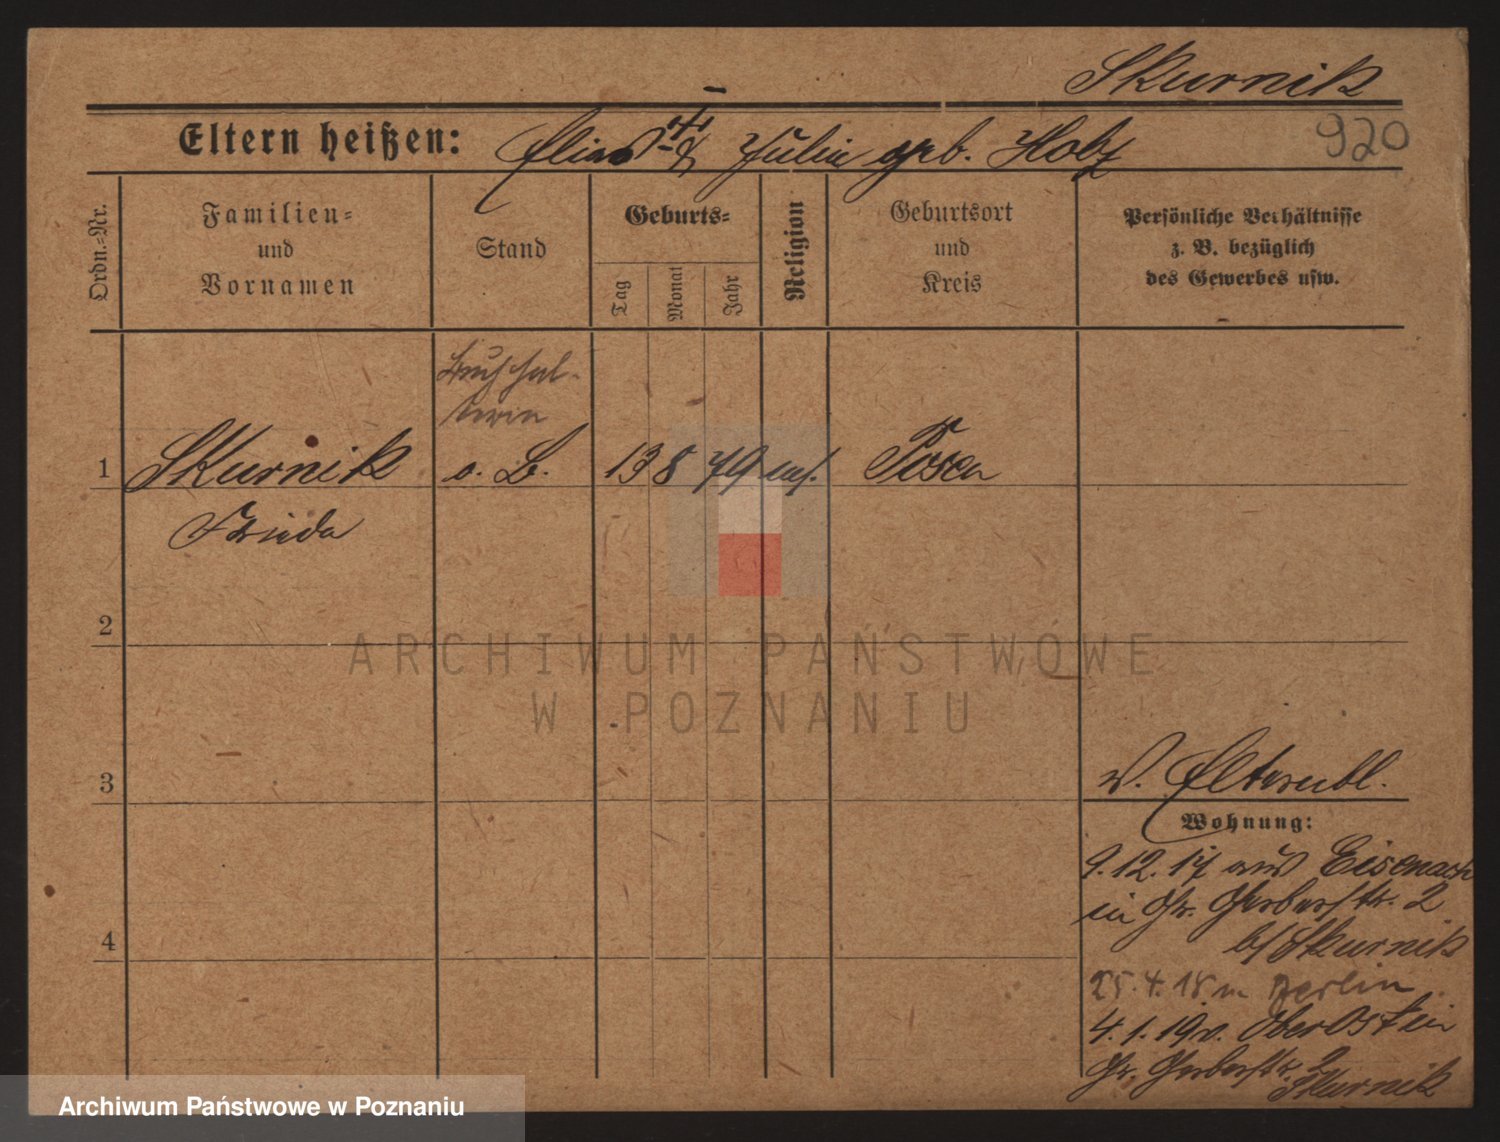 Skurnik
920
Eltern heißen: Elias † & Julie geb. Holz
Ordn.-Nr.
Familien- und Vornamen
Stand
Geburts-
Tag
Monat
Jahr
Religion
Geburtsort und Kreis
Persönliche Verhältnisse z. B. bezüglich des Gewerbes usw.
Buchhal-
terin
1 Skurnik o. B. 13 8 79 mos. Posen
Frieda
2
ARCHIWUM PAŃSTWOWE
W POZNANIU
3
Wohnung:
9.12.17 aus Eisenach
in Gr. Gerberstr. 2
b/ Skurnik
25.4.18 n. Berlin
4
4.1.19 v. Ober Ost in
Gr. Gerberstr. 2
Skurnik
Archiwum Państwowe w Poznaniu